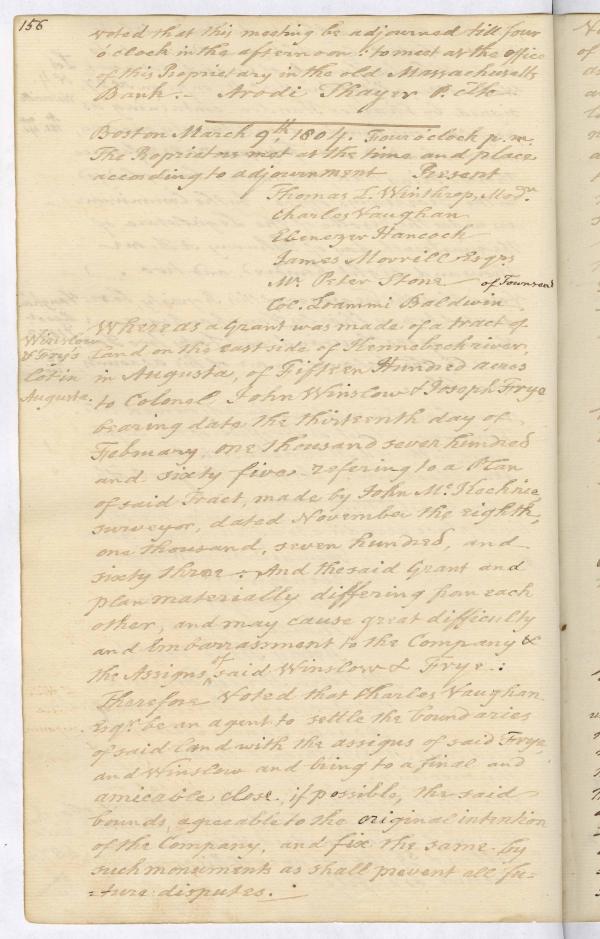 156
voted that this meeting be adjourned till four
o'clock in the afternoon: to meet at the office
of this Proprietary in the old Massachusetts
Bank :- Arodi Thayer P. Clk
Boston March 9th, 1804. Four o'clock p.m.
The Proprietors met at the time and place
according to adjournment Present
Thomas L. Winthrop, Modr.
Charles Vaughan
Ebenezer Hancock
James Morrill Esqrs
Mr. Peter Stone of Townsend
Col. Loammi Baldwin
Winslow
& Frye's
lot in
Augusta.
Whereas a Grant was made of a tract of
Land on the east side of Kennebeck river,
in Augusta, of Fifteen Hundred acres
to Colonel John Winslow & Joseph Frye
bearing date the thirteenth day of
February, one thousand seven hundred
and sixty five refering to a Plan
of said Tract, made by John Mc. Kechnie
surveyor, dated November the eighth,
one thousand, seven hundred, and
sixty three : And the said Grant and
plan materially differing from each
other, and may cause great difficulty
and Embarrassment to the Company &
the Assigns of said Winslow & Frye :
Therefore Voted that Charles Vaughan
Esqr. be an agent to settle the boundaries
of said land with the assigns of said Frye,
and Winslow and bring to a final and
amicable close, if possible, the said
bounds, agreeable to the original intention
of the Company, and fix the same by
such monuments as shall prevent all fu-
=ture disputes.